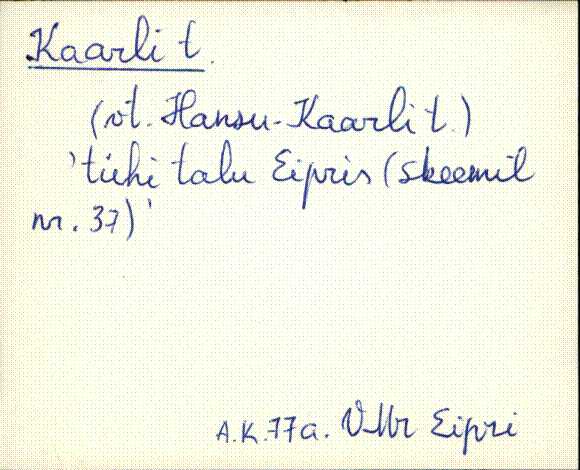 Kaarli t.
(vt. Hansu-Kaarli t.)
'tühi talu Eipris (skeemil
nr. 37)'
A.K. 77a. VMr Eipri